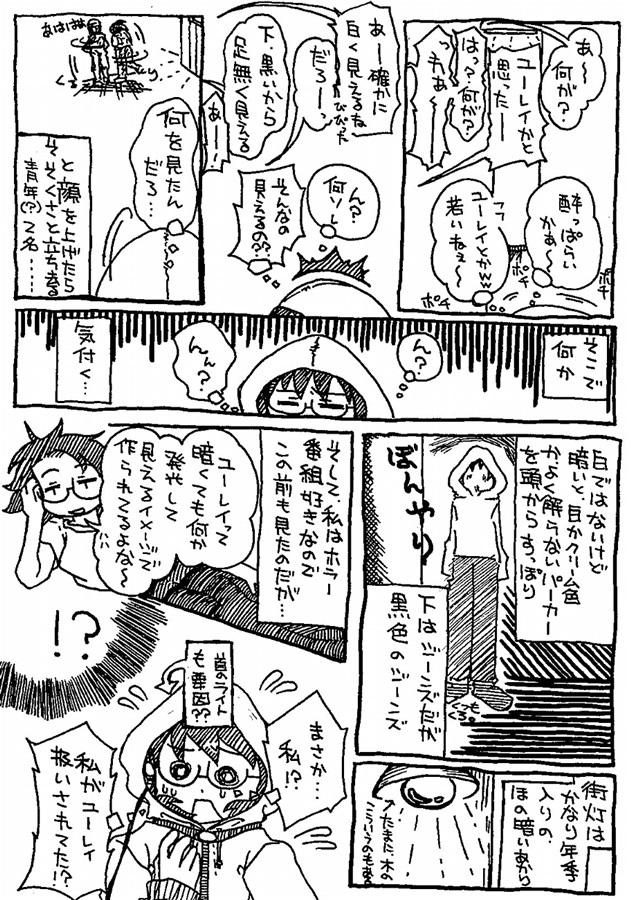 あ～
何が？
ユーレイかと
思ったー
はっ？何が？
っすあ～
酔っぱらい
かぁ～
フフ
ユーレイとかw
若いねぇ～
ポチ
ポチ
ポチ
あー確かに
白く見えるね
びびった
だろーっ
下、黒いから
足無く見える
あー
ん？
何ソレ
そんなの
見えるの？？
あははは
何を見たん
だろ…
と顔を上げたら
そそくさと立ち去る
青年(?)2名……
そこで
何か
ん？
んん？
気付く…
白ではないけど
暗いと、白かクリーム色
かよく解らないパーカー
を頭からすっぽり
ぼんやり
下はジーンズだが
黒色のジーンズ
くつも
くろ。
そして、私はホラー
番組好きなので
この前も見たのだが…
ユーレイって
暗くても何か
発光して
見えるイメージで
作られてるよな～
!?
街灯は
かなり年季
入りの、
ほの暗いあかり
↑たまに木の
こういうのもある
首のライト
も要因？？
まさか…
私!?
私がユーレイ
扱いされてた!?